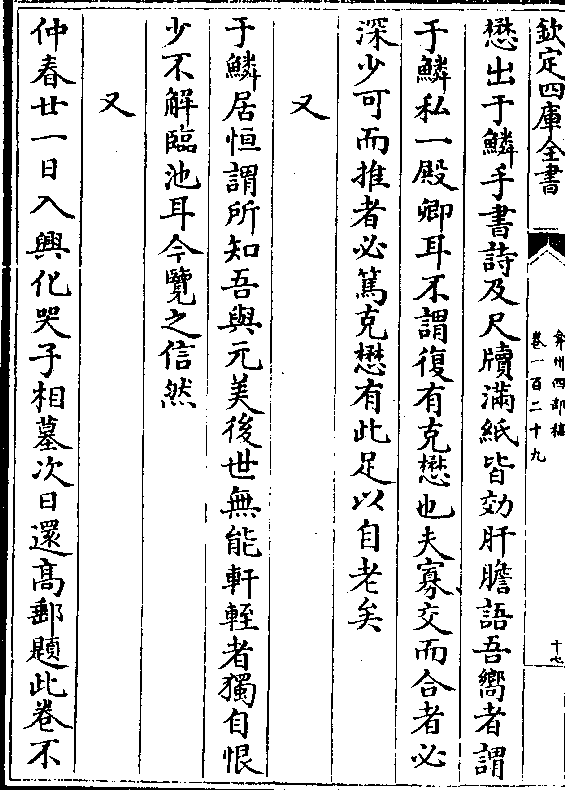 欽定四庫全書
弇州四部稿
卷一百二十九
十七
懋出于鱗手書詩及尺牘滿紙皆効肝膽語吾嚮者謂
于鱗私一殿卿耳不謂復有克懋也夫寡交而合者必
深少可而推者必篤克懋有此足以自老矣
又
于鱗居恒謂所知吾與元美後世無能軒輊者獨自恨
少不解臨池耳今覽之信然
又
仲春廿一日入興化哭子相墓次日還髙郵題此卷不